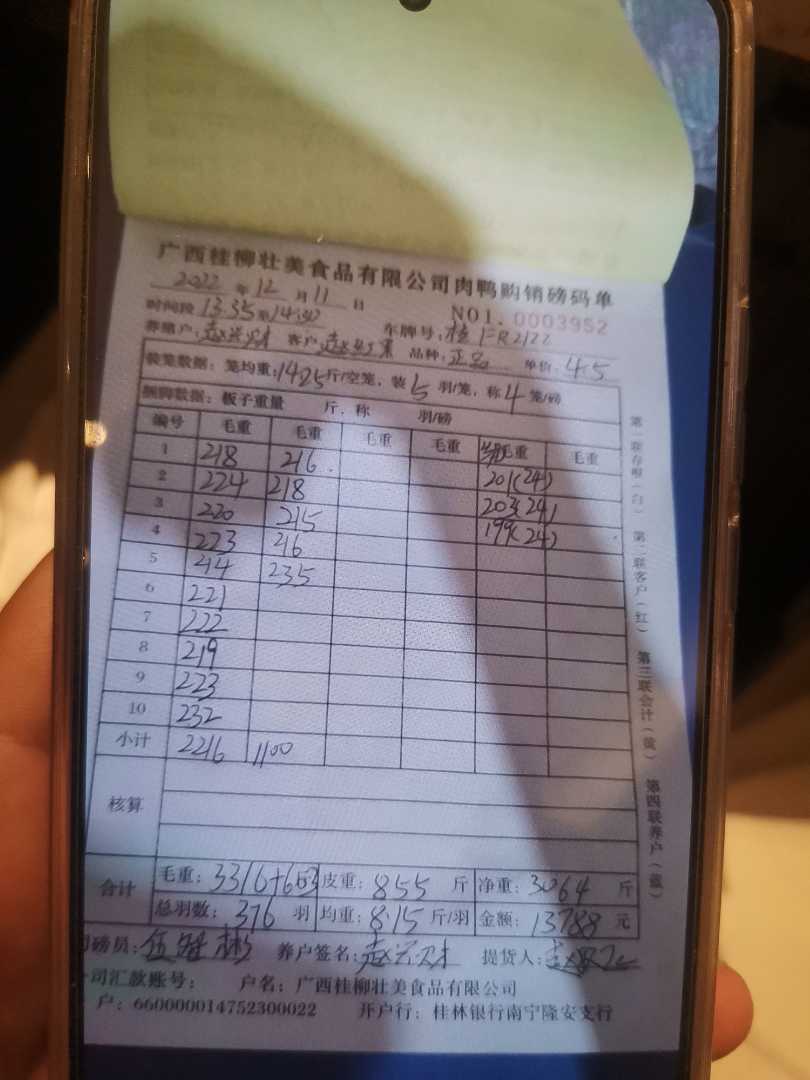 广西桂柳壮美食品有限公司肉鸭购销磅码单
2022 年 12 月 11 日 NO1. 0003952
时间段 13:35至
养殖户: 赵兴财 客户: 车牌号: 品种: 正品 单价: 4.5
装笼数据: 笼均重: 14.25斤/空笼, 装 5 羽/笼, 称 4 笼/磅
捆脚数据: 板子重量 斤, 称 羽/磅
编号 毛重 毛重 毛重 毛重 毛重 毛重
1 218 216 201(24)
2 224 218 203(24)
3 220 215 199(24)
4 223 216
5 214 235
6 221
7 222
8 219
9 223
10 232
小计 2216 1100
核算
合计 毛重: 3316+603 皮重: 855 斤 净重: 3064 斤
总羽数: 376 羽 均重: 8.15 斤/羽 金额: 13788 元
司磅员: 养户签名: 赵兴财 提货人:
公司汇款账号: 户名: 广西桂柳壮美食品有限公司
户: 660000014752300022 开户行: 桂林银行南宁隆安支行
第一联存根(白) 第二联客户(红) 第三联会计(黄) 第四联养户(蓝)